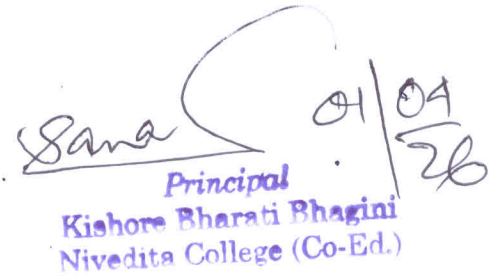 Sana 01/04/26
Principal
Kishore Bharati Bhagini
Nivedita College (Co-Ed.)